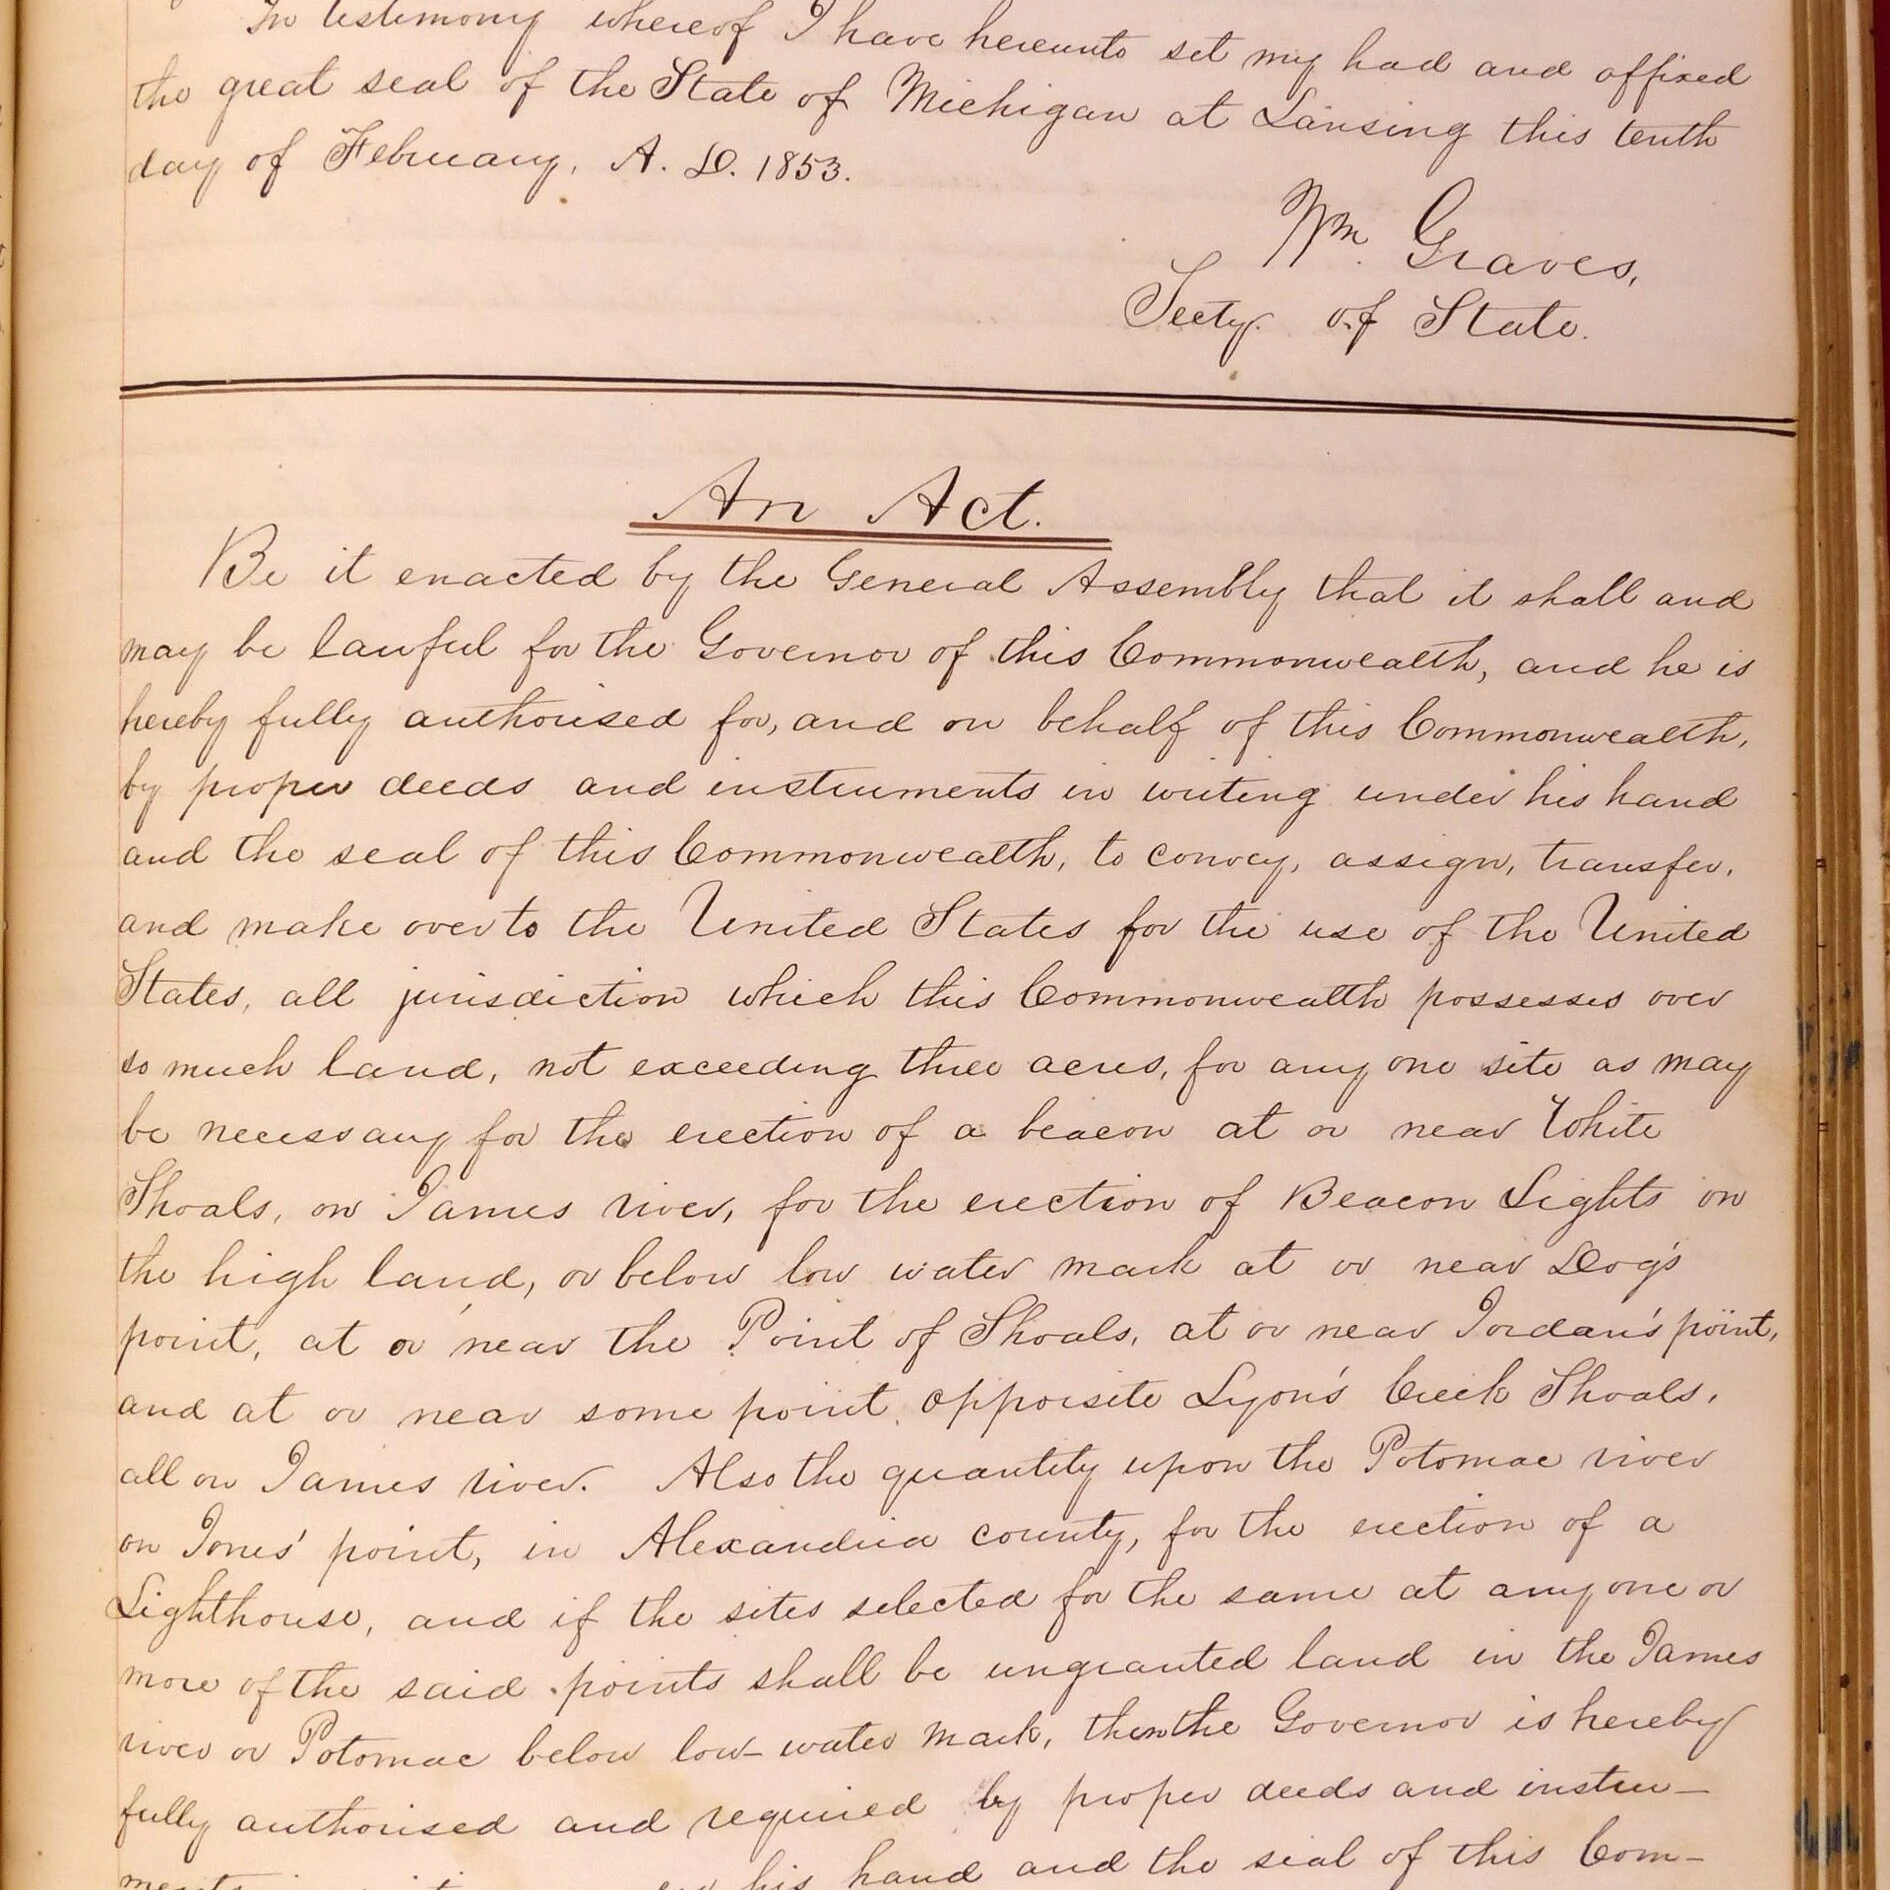 In testimony whereof I have hereunto set my had and affixed
the great seal of the State of Michigan at Lansing this tenth
day of February, A. D. 1853.
Wm. Graves,
Secty. of State.
An Act.
Be it enacted by the General Assembly that it shall and
may be lawful for the Governor of this Commonwealth, and he is
hereby fully authorised for, and on behalf of this Commonwealth,
by proper deeds and instruments in writing under his hand
and the seal of this Commonwealth, to convey, assign, transfer,
and make over to the United States for the use of the United
States, all jurisdiction which this Commonwealth possesses over
so much land, not exceeding three acres, for any one site as may
be necessary for the erection of a beacon at or near White
Shoals, on James river, for the erection of Beacon Lights on
the high land, or below low water mark at or near Dog's
point, at or near the Point of Shoals, at or near Jordan's point,
and at or near some point opporsite Lyon's Creek Shoals,
all on James river. Also the quantity upon the Potomac river
on Jones' point, in Alexandria county, for the erection of a
Lighthouse, and if the sites selected for the same at any one or
more of the said points shall be ungranted land in the James
river or Potomac below low-water mark, then the Governor is hereby
fully authorised and required by proper deeds and instru-
ments his hand and the seal of this Com-